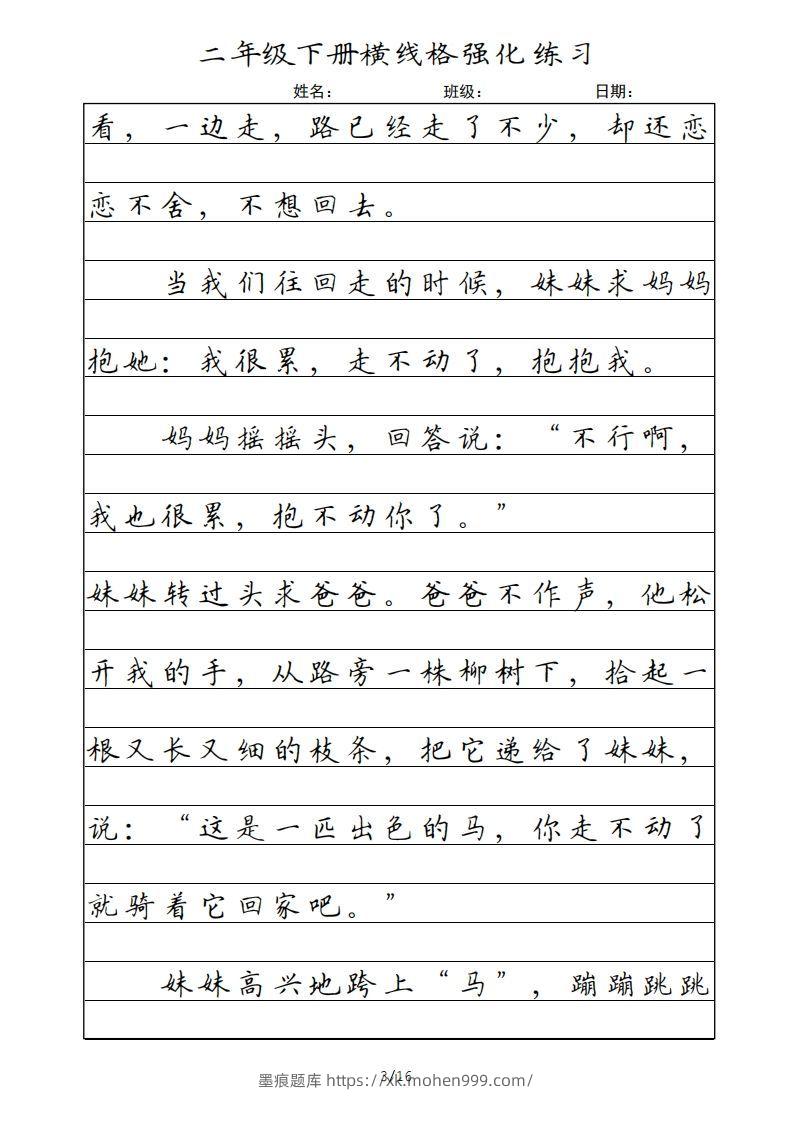 二年级下册横线格强化练习
姓名： 班级： 日期：
看，一边走，路已经走了不少，却还恋
恋不舍，不想回去。
当我们往回走的时候，妹妹求妈妈
抱她：我很累，走不动了，抱抱我。
妈妈摇摇头，回答说：“不行啊，
我也很累，抱不动你了。”
妹妹转过头求爸爸。爸爸不作声，他松
开我的手，从路旁一株柳树下，拾起一
根又长又细的枝条，把它递给了妹妹，
说：“这是一匹出色的马，你走不动了
就骑着它回家吧。”
妹妹高兴地跨上“马”，蹦蹦跳跳
3/16
墨痕题库 https://xk.mohen999.com/